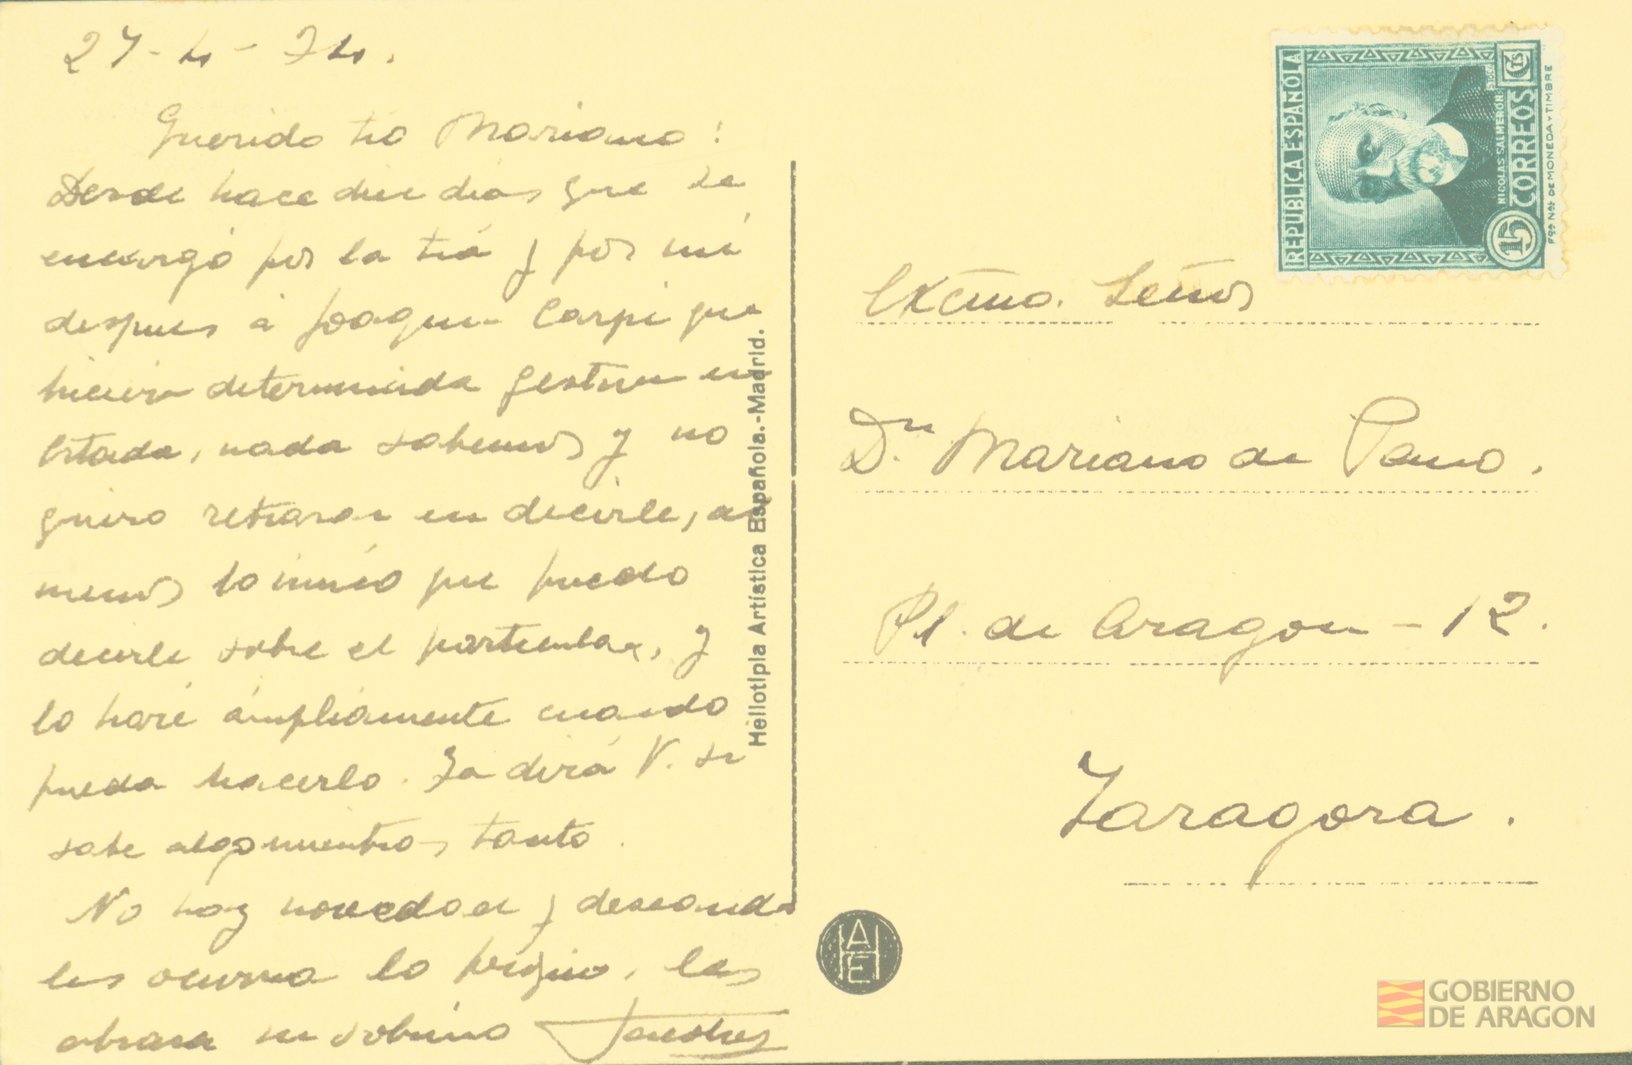 27-4-34.
Querido tio Mariano:
Desde hace diez dias que se
encargó por la tia y por mi
despues á Joaquin Carpi que
hiciera determinada gestion en
Estada, nada sabemos y no
quiero retrasar en decirle, al
menos lo único que puedo
decirle sobre el particular, y
lo haré ámpliamente cuando
pueda hacerlo. Ya dirá V. si
sabe algo mientras tanto.
No hay novedad y deseando
les ocurra lo própio, les
abraza su sobrino
Heliotipia Artística Española.-Madrid.
REPUBLICA ESPAÑOLA
NICOLAS SALMERON
CORREOS
15 CTS
FCA NAL DE MONEDA Y TIMBRE
Excmo. Señor
Dn. Mariano de Pano.
Pl. de Aragon - 12.
Zaragoza.
HAE
GOBIERNO
DE ARAGON